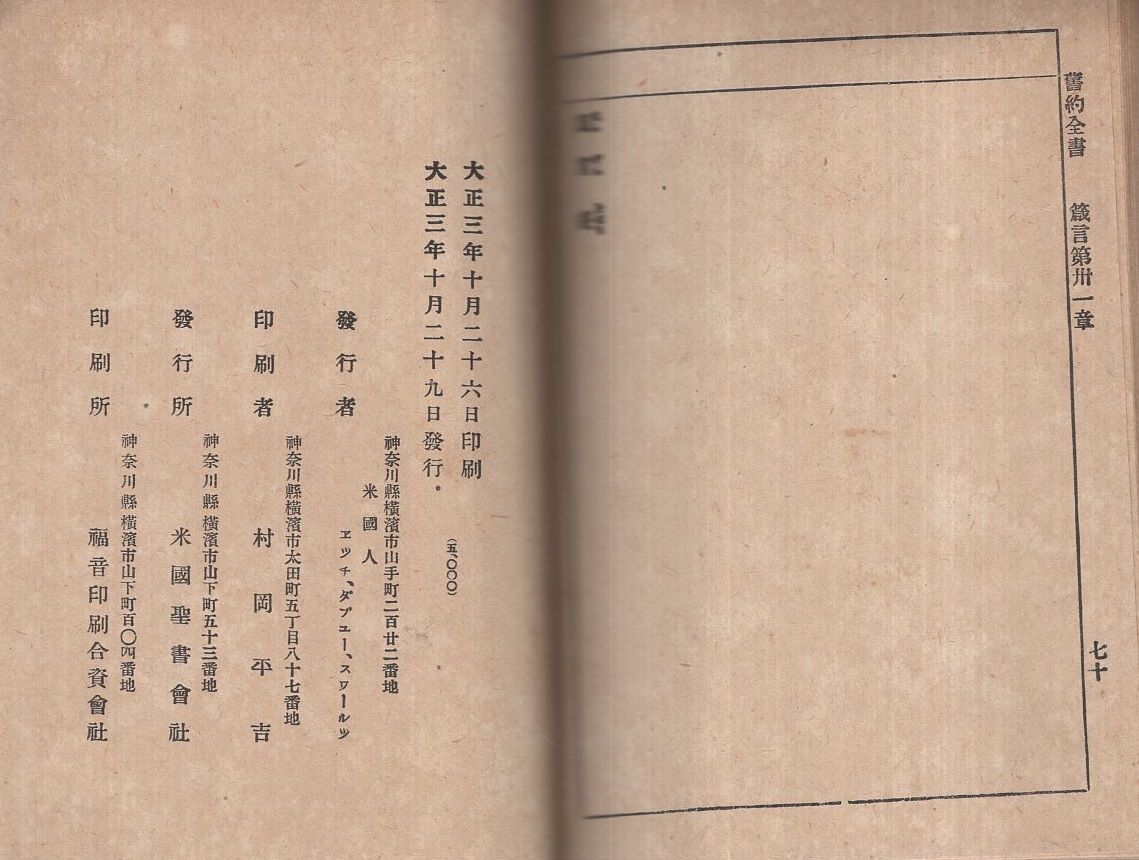 舊約全書 箴言第卅一章 七十
大正三年十月二十六日印刷
(五、〇〇〇)
大正三年十月二十九日發行
神奈川縣橫濱市山手町二百廿二番地
米國人
發行者 ヱッチ、ダブユー、スワールツ
神奈川縣橫濱市太田町五丁目八十七番地
印刷者 村岡平吉
神奈川縣橫濱市山下町五十三番地
發行所 米國聖書會社
神奈川縣橫濱市山下町百〇四番地
印刷所 福音印刷合資會社